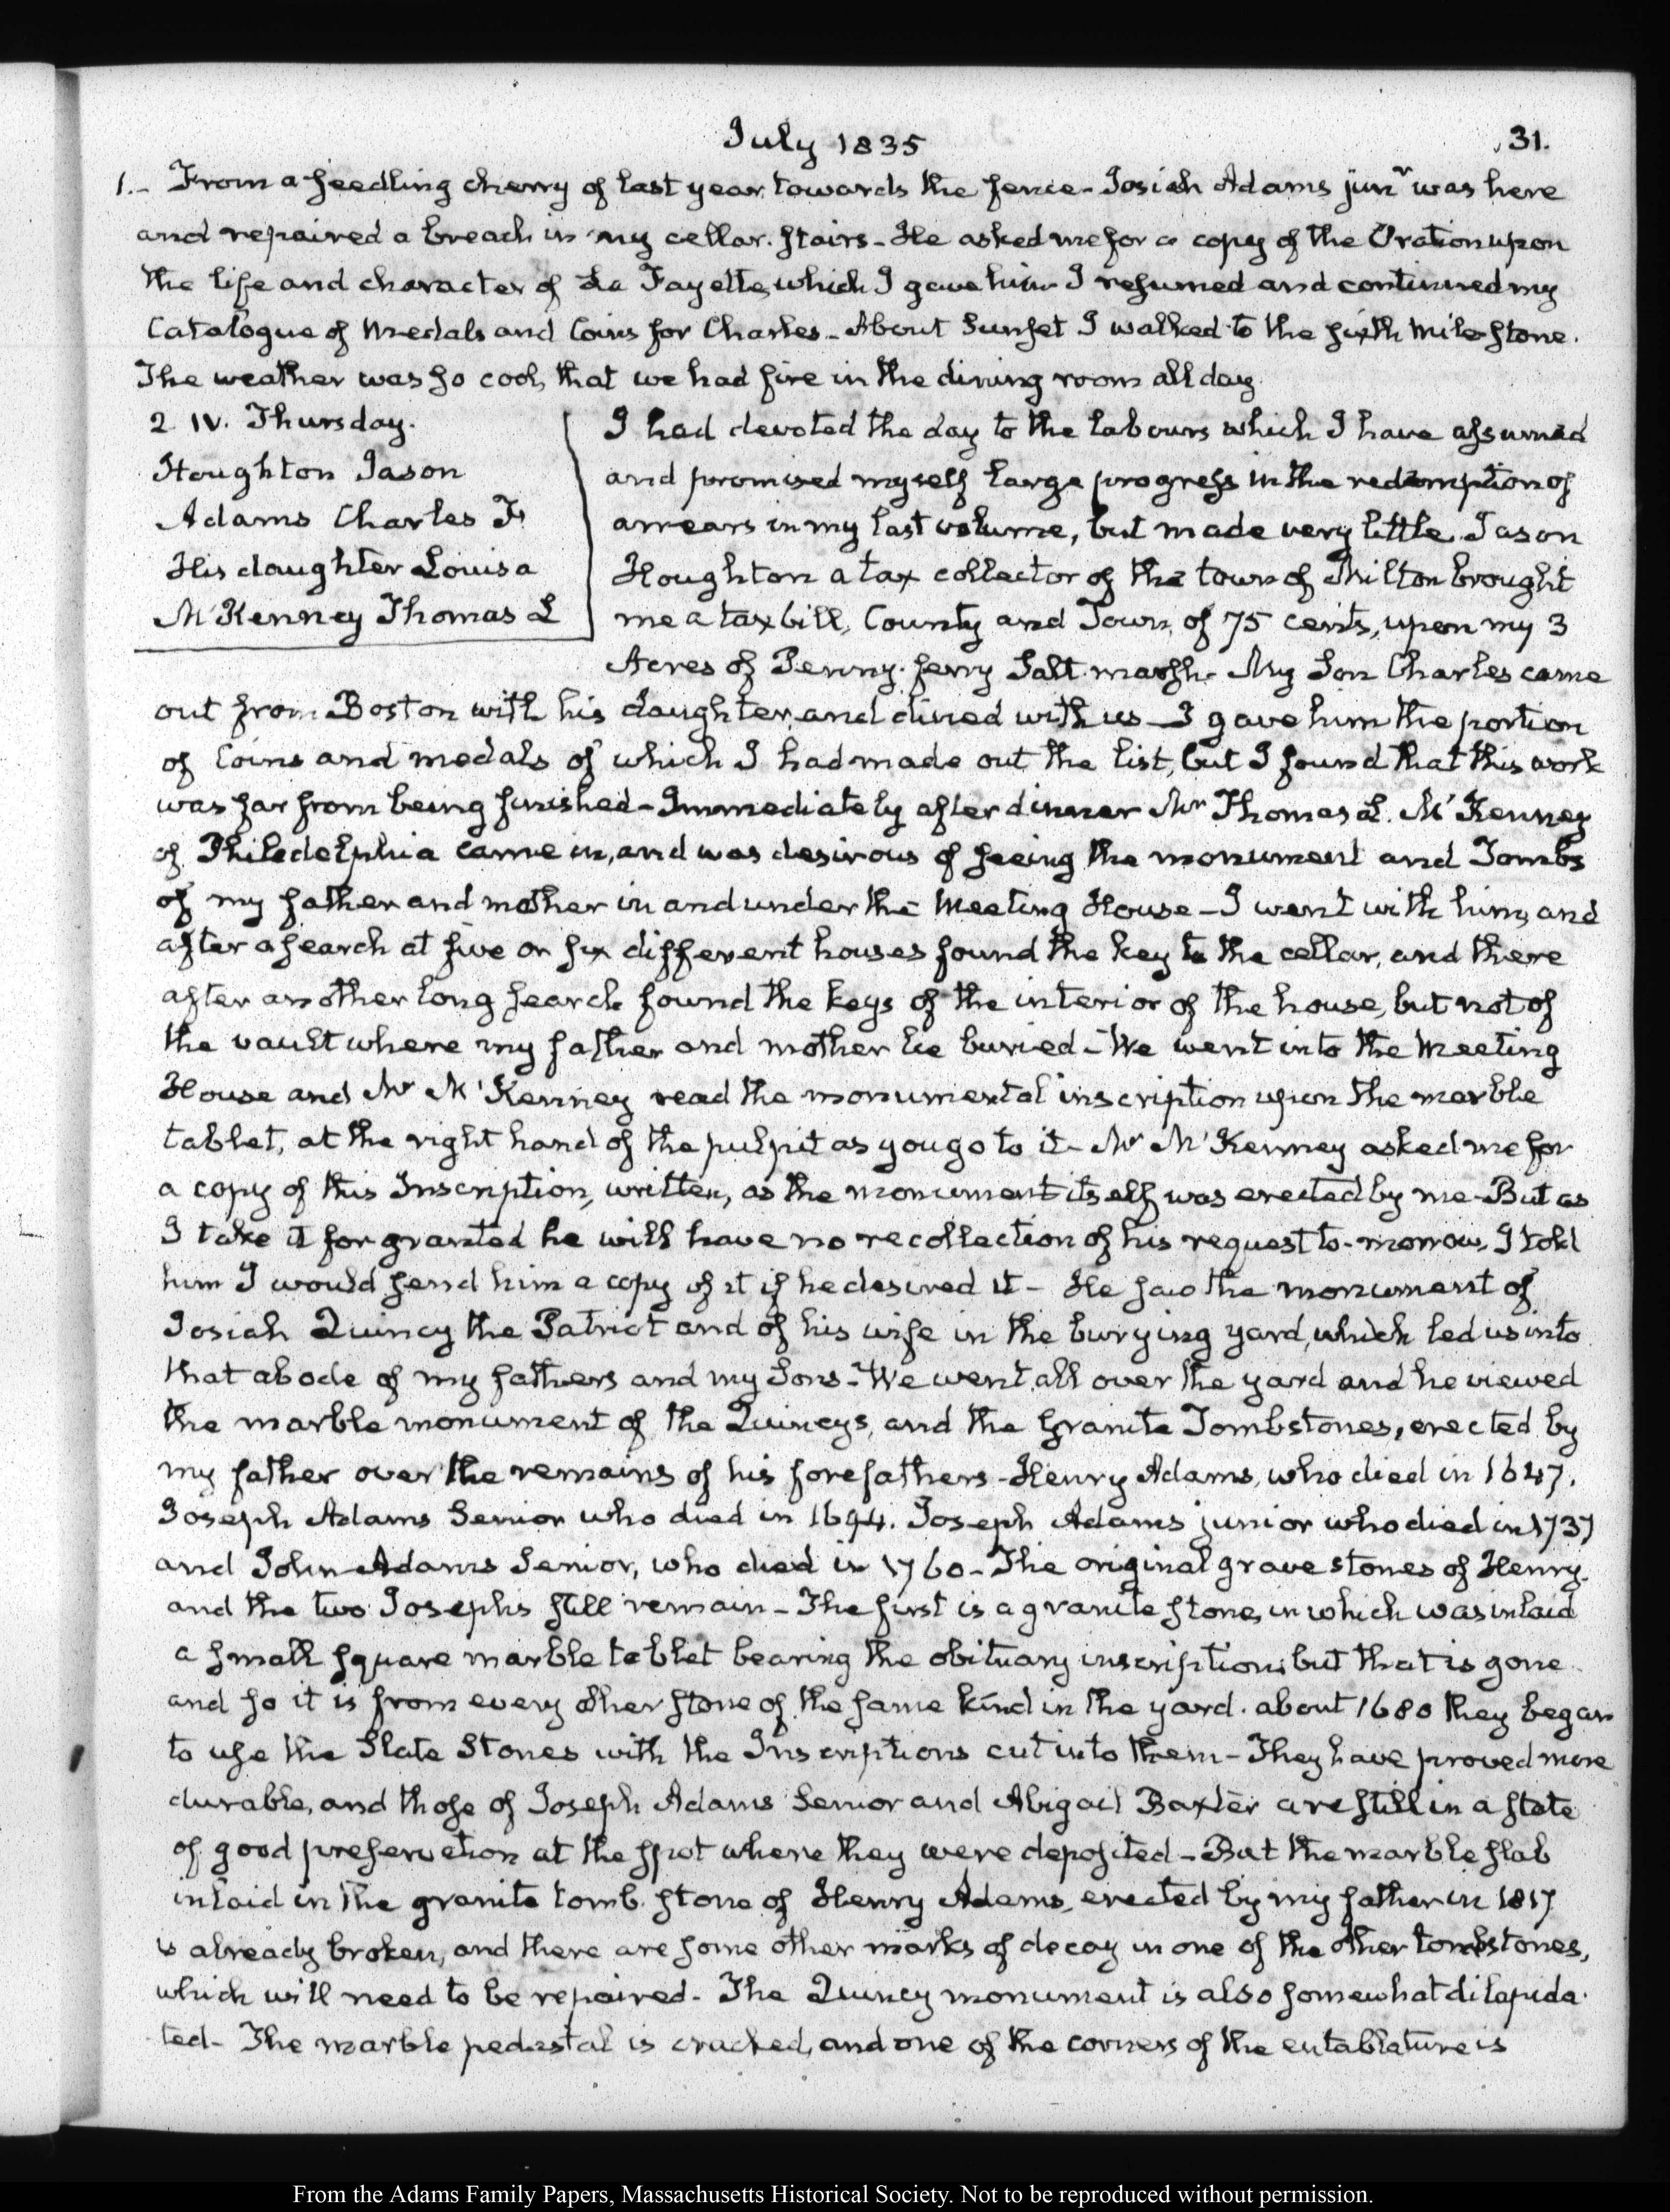 July 1835
31.
1.- From a seedling cherry of last year towards the fence - Josiah Adams junr was here
and repaired a breach in my cellar. stairs - He asked me for a copy of the Oration upon
the life and character of La Fayette, which I gave him - I resumed and continued my
Catalogue of Medals and Coins for Charles - About Sunset I walked to the sixth Mile-stone.
The weather was so cool, that we had fire in the dining room all day.
2. IV. Thursday.
Houghton Jason
Adams Charles F.
His daughter Louisa
McKenney Thomas L
I had devoted the day to the labours which I have assumed
and promised myself large progress in the redemption of
arrears in my last volume, but made very little. Jason
Houghton a tax collector of the town of Milton brought
me a tax bill, County and Town, of 75 cents, upon my 3
Acres of Penny-ferry Salt marsh - My Son Charles came
out from Boston with his daughter, and dined with us - I gave him the portion
of Coins and medals of which I had made out the list, but I found that this work
was far from being finished - Immediately after dinner Mr Thomas L. McKenney
of Philadelphia came in, and was desirous of seeing the monument and Tombs
of my father and mother in and under the Meeting House - I went with him, and
after a search at five or six different houses found the key to the cellar, and there
after another long search found the keys of the interior of the house, but not of
the vault where my father and mother lie buried - We went into the Meeting
House and Mr McKenney read the monumental inscription upon the marble
tablet, at the right hand of the pulpit as you go to it - Mr McKenney asked me for
a copy of this Inscription, written, as the monument itself was erected by me - But as
I take it for granted he will have no recollection of his request to-morrow, I told
him I would send him a copy of it if he desired it - He saw the monument of
Josiah Quincy the Patriot and of his wife in the burying yard, which led us into
that abode of my fathers and my Sons - We went all over the yard and he viewed
the marble monument of the Quincys, and the Granite Tombstones, erected by
my father over the remains of his forefathers - Henry Adams, who died in 1647.
Joseph Adams Senior who died in 1694. Joseph Adams junior who died in 1737
and John Adams Senior, who died in 1760 - The original grave stones of Henry
and the two Josephs still remain - The first is a granite stone, in which was inlaid
a small square marble tablet bearing the obituary inscription; but that is gone
and so it is from every other stone of the same kind in the yard. about 1680 they began
to use the Slate Stones with the Inscriptions cut into them - They have proved more
durable, and those of Joseph Adams Senior and Abigail Baxter are still in a state
of good preservation at the spot where they were deposited - But the marble slab
inlaid in the granite tomb. stone of Henry Adams, erected by my father in 1817
is already broken, and there are some other marks of decay in one of the other tombstones,
which will need to be repaired - The Quincy monument is also somewhat dilapida-
ted - The marble pedestal is cracked, and one of the corners of the entablature is
From the Adams Family Papers, Massachusetts Historical Society. Not to be reproduced without permission.